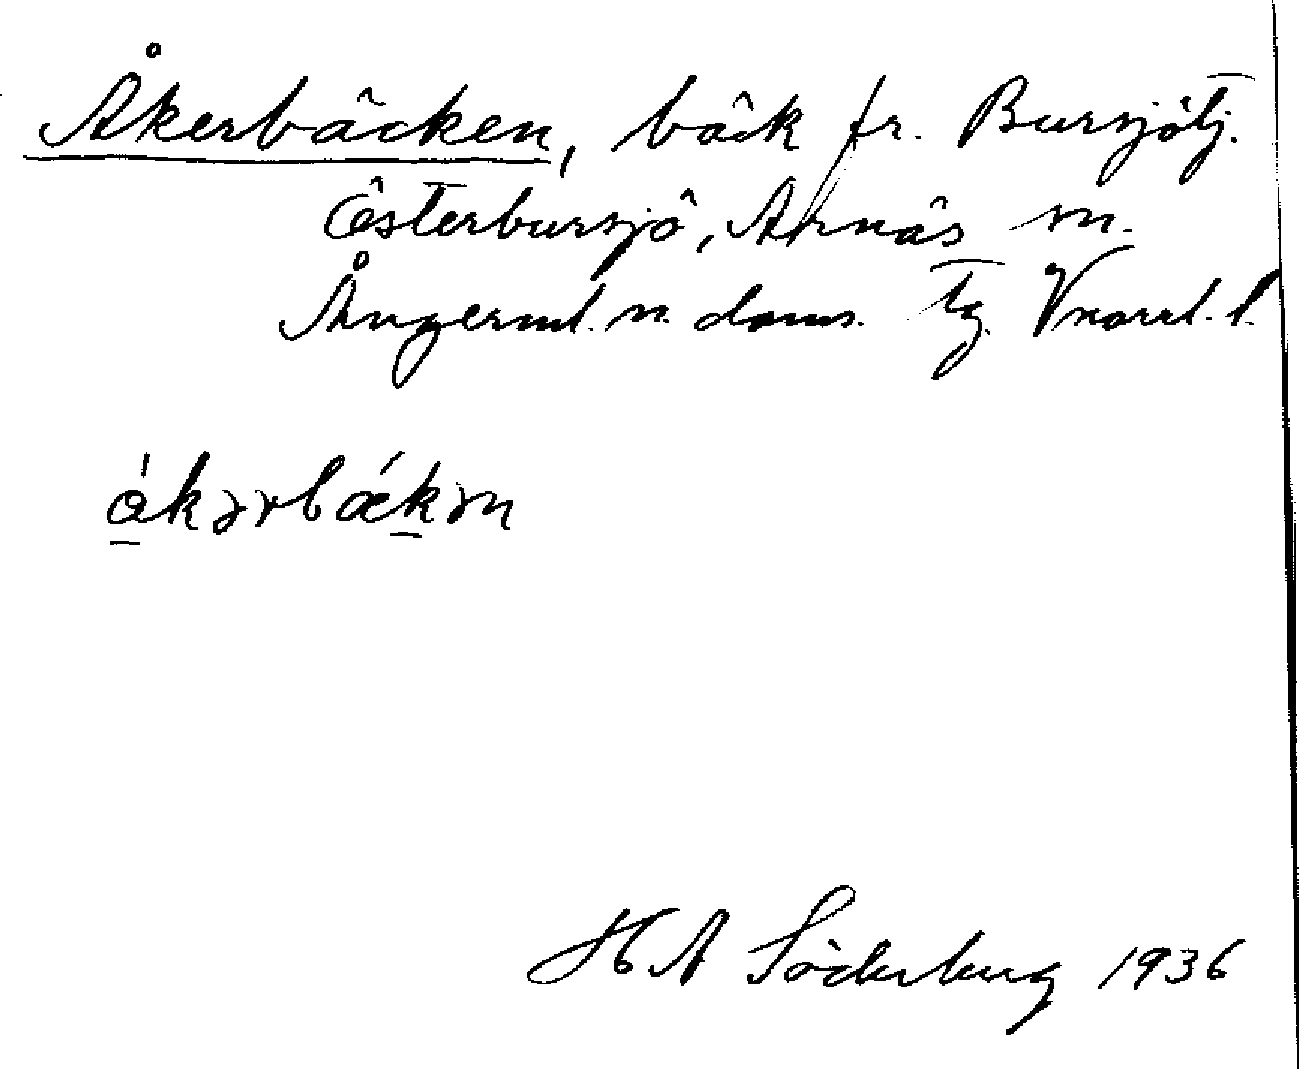 Åkerbäcken, bäck fr. Bursjötj.
Österbursjö, Arnäs sn.
Ångerml. n. doms. tg. Vnorrl. l.
åkərbækən
H A Söderberg 1936